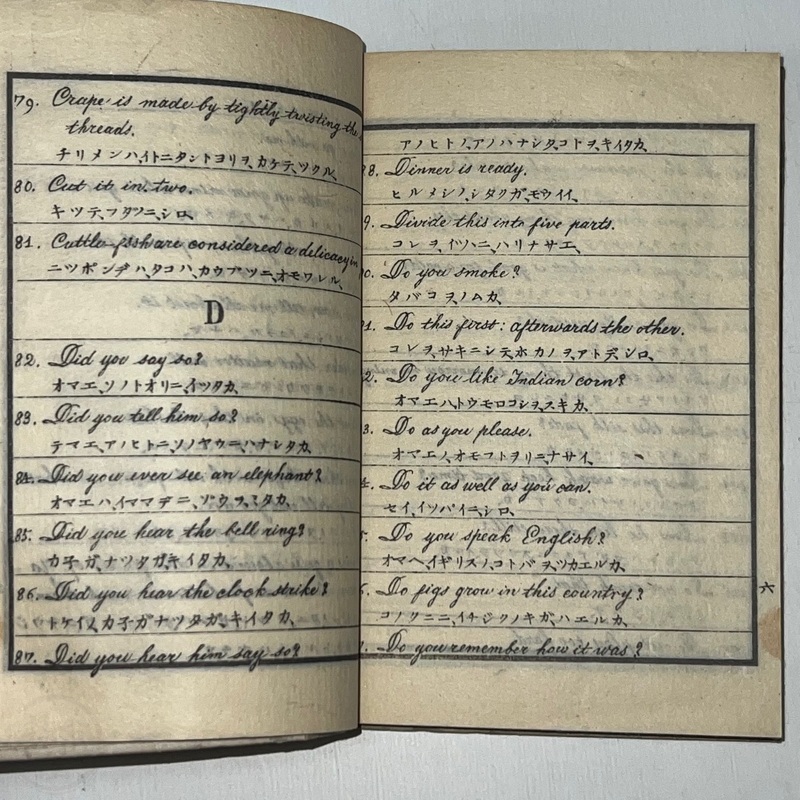 79. Crape is made by tightly twisting the
threads.
チリメンハ、イトニタントヨリヲ、カケテ、ツクル、
80. Cut it in two.
キツテ、フタツニ、シロ、
81. Cuttle-fish are considered a delicacy in
ニツポンヂハ、タコハ、カウアツニ、オモワレル、
D
82. Did you say so?
オマエ、ソノトオリニ、イツタカ、
83. Did you tell him so?
テマエ、アノヒトニ、ソノヤウニ、ハナシタカ、
84. Did you ever see an elephant?
オマエハ、イママデニ、ゾウヲ、ミタカ、
85. Did you hear the bell ring?
カ子ガ、ナツタガ、キイタカ、
86. Did you hear the clock strike?
トケイノ、カ子ガナツタガ、キイタカ、
87. Did you hear him say so?
アノヒトノ、アノハナシタ、コトヲ、キイタカ、
8. Dinner is ready.
ヒルメシノ、シタクガ、モウイイ、
9. Divide this into five parts.
コレヲ、イツハニ、ハリナサエ、
0. Do you smoke?
タバコヲ、ノムカ、
1. Do this first: afterwards the other.
コレヲ、サキニシテ、ホカノヲ、アトデ、シロ、
2. Do you like Indian corn?
オマエハ、トウモロコシヲ、スキカ、
3. Do as you please.
オマエノ、オモフトヲリニ、ナサイ、
4. Do it as well as you can.
セイ、イツパイニ、シロ、
5. Do you speak English?
オマヘ、イギリスノ、コトバヲ、ツカエルカ、
6. Do figs grow in this country?
コノクニニ、イチジクノキガ、ハエルカ、
六
7. Do you remember how it was?